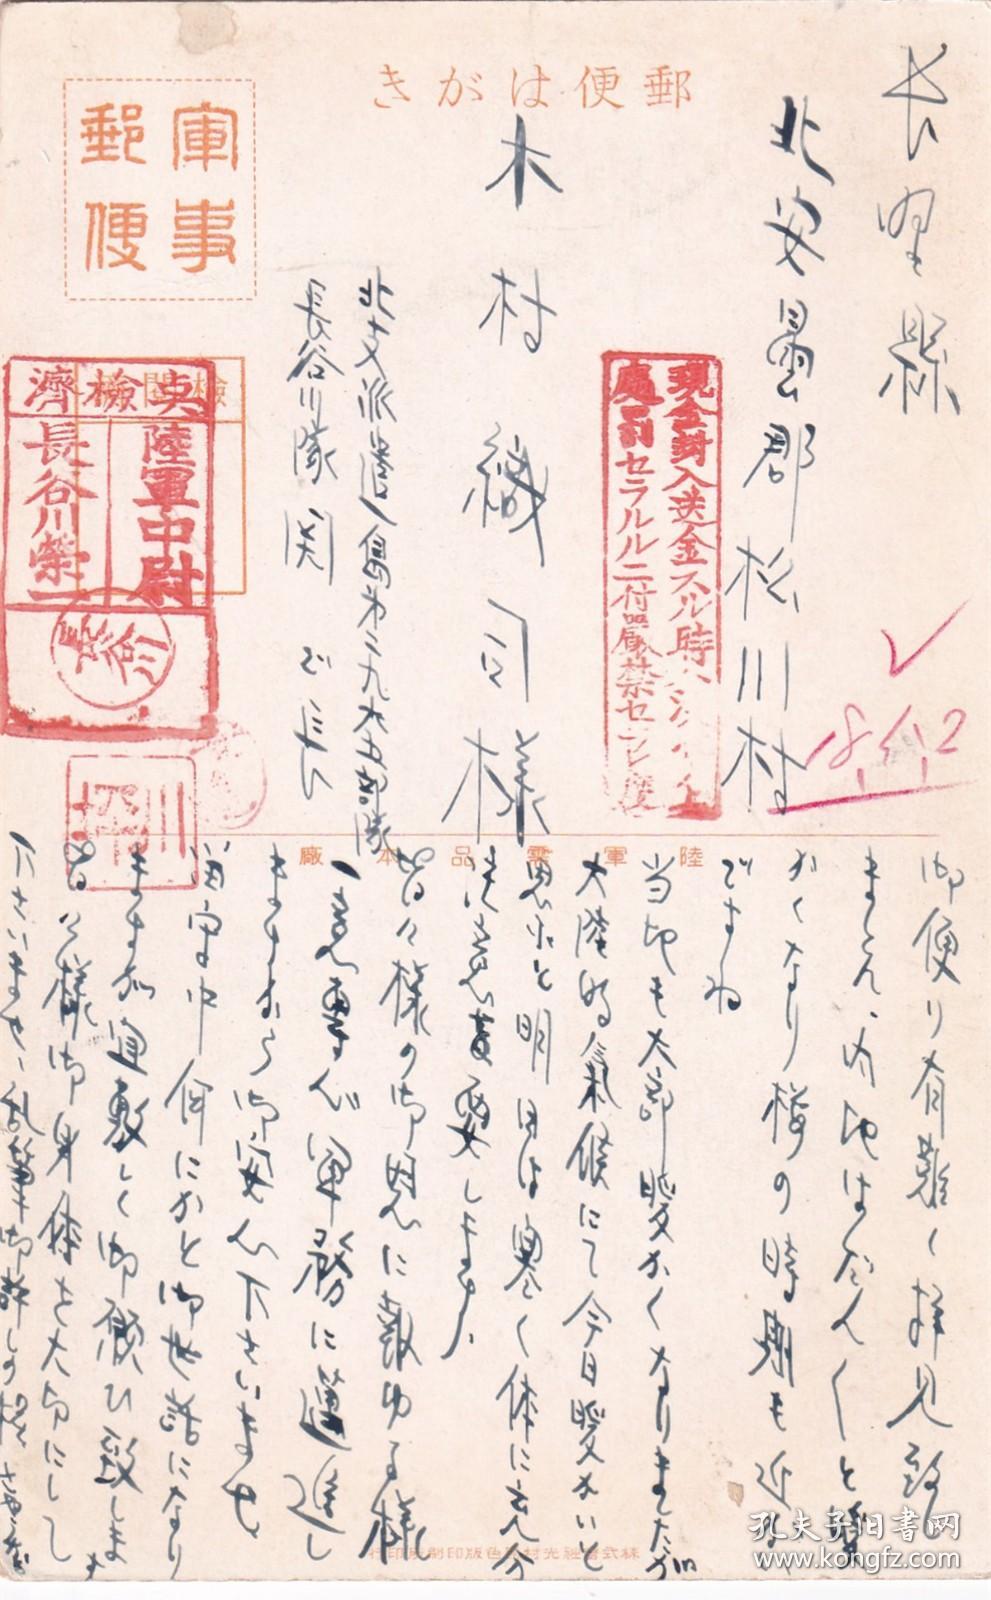 郵便はがき
軍事
郵便
長野縣
北安曇郡松川村
木村織司様
北支派遣
長谷川隊
検閲
検濟
陸軍中尉
長谷川榮一
長谷川
現金封入送金スル時
處罰セラルルニ付嚴禁セ
陸軍需品本廠
御便り有難く拝見致し
ました、内地はだんくと暖
かくなり桜の時期も近い
ですね
当地も大部暖かくなりましたが
大陸的気候にて今日暖かいと
思ふと明日は寒く体に充分
注意を要します、
皆々様の御恩に報ゆる様
一意専心軍務に邁進し
ますから御安心下さいませ
留守中何にかと御世話になり
ますが宜敷く御願ひ致します
皆々様御身体を大切にして
下さいませ、乱筆御許しの程
株式會社光村原色版印刷所印行
孔夫子旧书网
www.kongfz.com